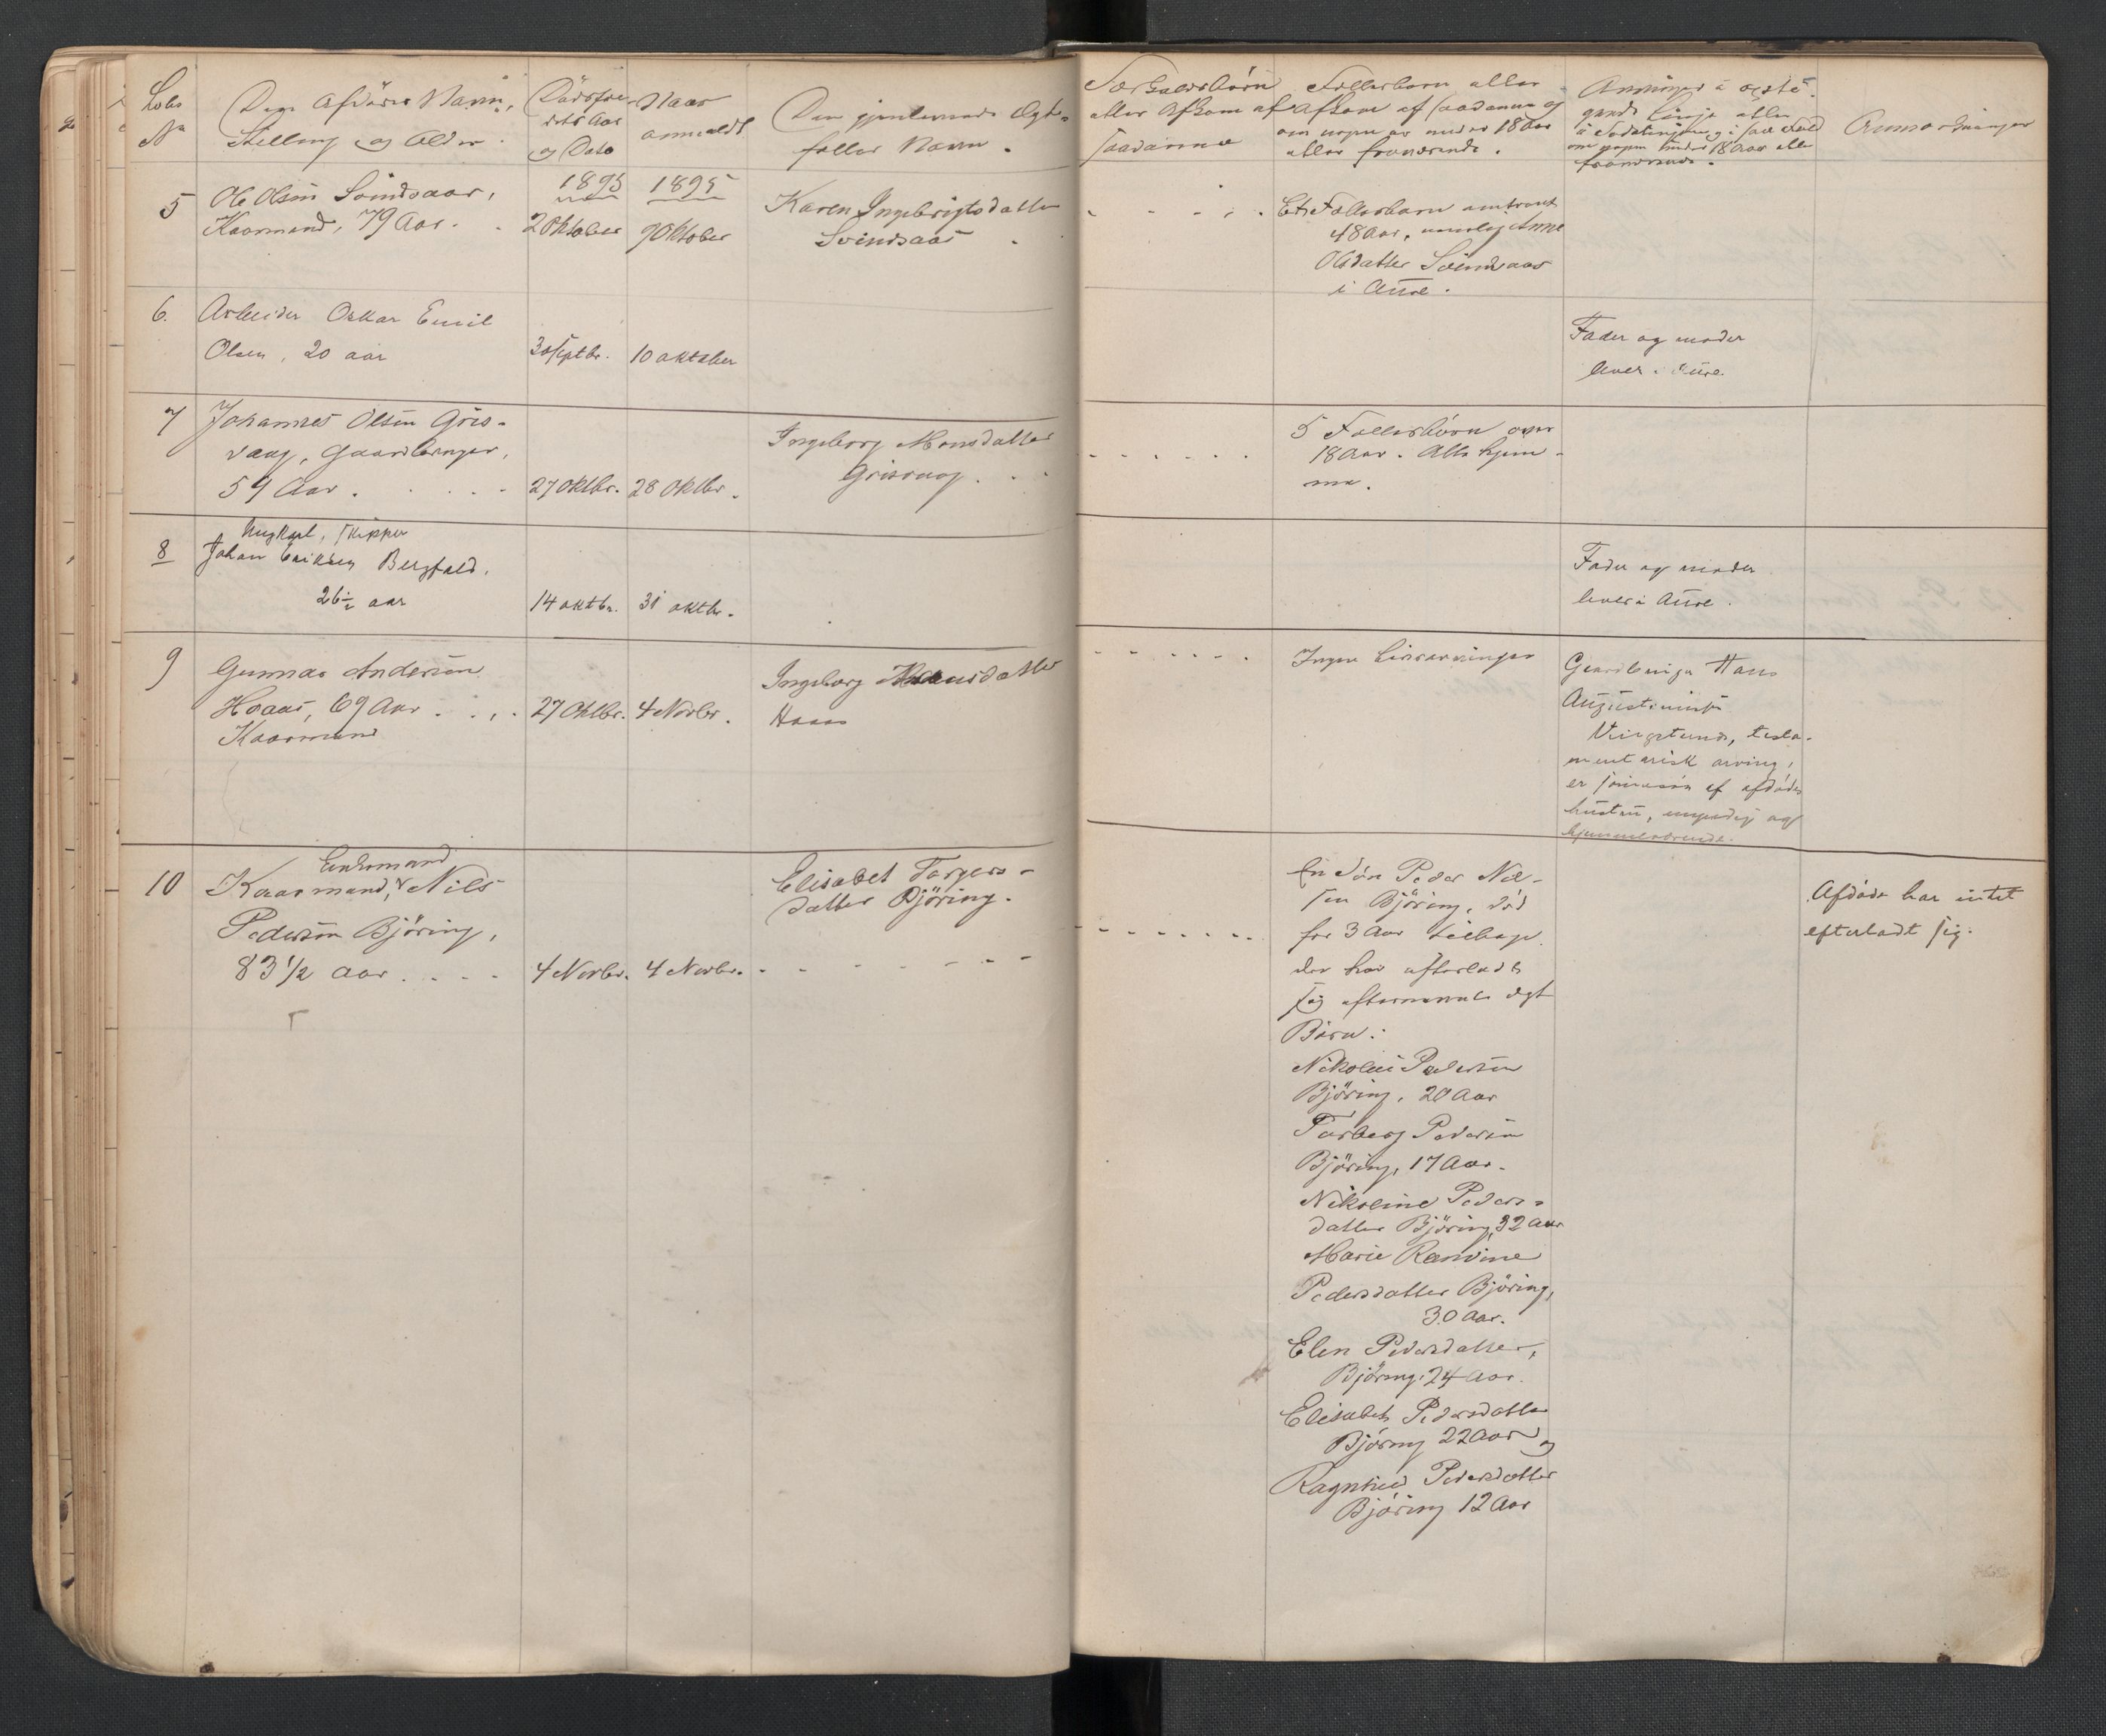 Lobe No
Den Afdødes Navn,
Stilling og Alder.
Dødsfal-
dets Aar
og Dato
Naar
anmeldt
Den gjenlevende Ægte-
fælles Navn.
Særkuldsbørn
eller Afkom af
saadanne
Fællesbørn eller
Afkom af saadanne og
om nogen er under 18 Aar
eller fraværende.
Arvinger i opsti-
gende Linje eller
i Sidelinjen og i saa Fald
om nogen under 18 Aar eller
fraværende.
Anmærkninger
5
Ole Olsen Svindsaas,
Kaarmand, 79 Aar.
1895
2 Oktober
1895
9 Oktober
Karen Ingebrigtsdatter
Svindsaas
Et Fællesbarn omtrent
48 Aar, nemlig Anne
Olsdatter Svindsaas
i Aure.
6.
Arbeider Oskar Emil
Olsen, 20 aar
30 septbr.
10 oktober
Fader og moder
lever i Aure
7
Johannes Olsen Gris-
vaag, Gaardbruger,
59 Aar.
27 Oktbr.
28 Oktbr.
Ingeborg Monsdatter
Grisvaag.
5 Fællesbørn over
18 Aar. Alle hjem-
me.
8
Ungkarl, skipper
Johan Eriksen Bergfald.
26 1/2 aar
14 oktbr.
31 oktbr.
Fader og moder
lever i Aure.
9
Gunnar Andersen
Hoaas, 69 Aar.
Kaarmand
27 Oktbr.
4 Novbr.
Ingeborg Hansdatter
Hoaas
Ingen Livsarvinger
Gaardbruger Hans
Augustinusen
Vingstund, testa-
mentarisk arving,
er søstersøn af afdødes
hustru, myndig og
hjemmeværende.
10
Enkemand
Kaarmand, Nils
Pedersen Björing,
83 1/2 Aar
4 Novbr.
4 Novbr.
Elisabet Torgers-
datter Björing.
En Søn Peder Nil-
sen Björing, død
for 3 Aar tilbage.
der har efterladt
sig efternævnte ægt
Børn:
Nikolai Pedersen
Björing, 20 Aar
Torberg Pedersen
Björing, 17 Aar.
Nikoline Peders-
datter Björing, 32 Aar
Marie Randine
Pedersdatter Björing,
30 Aar.
Elen Pedersdatter,
Björing, 24 Aar.
Elisabeth Pedersdatter
Björing 22 Aar og
Ragnhild Pedersdatter
Björing 12 Aar
Afdøde har intet
efterladt sig.